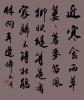 近寒食雨草
萋萋著麥苗風
柳映堤等是有
家歸未得杜鵑
休向耳邊啼